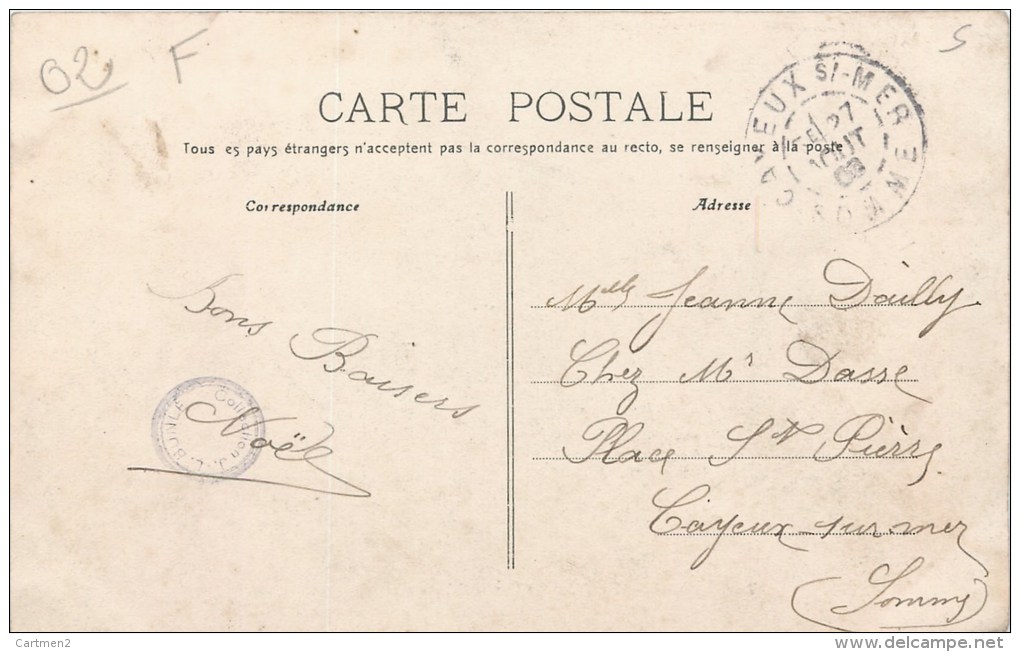 02 F 5
CARTE POSTALE
Tous es pays étrangers n'acceptent pas la correspondance au recto, se renseigner à la poste
CAYEUX S/-MER
27
AOUT
SOMME
Correspondance
Adresse
Bons Baisers
Noël
Collection J.
Mlle Jeanne Dailly
Chez Mr Dasse
Place St Pierre
Cayeux-sur-mer
(Somme)
Cartmen2
www.delcampe.net